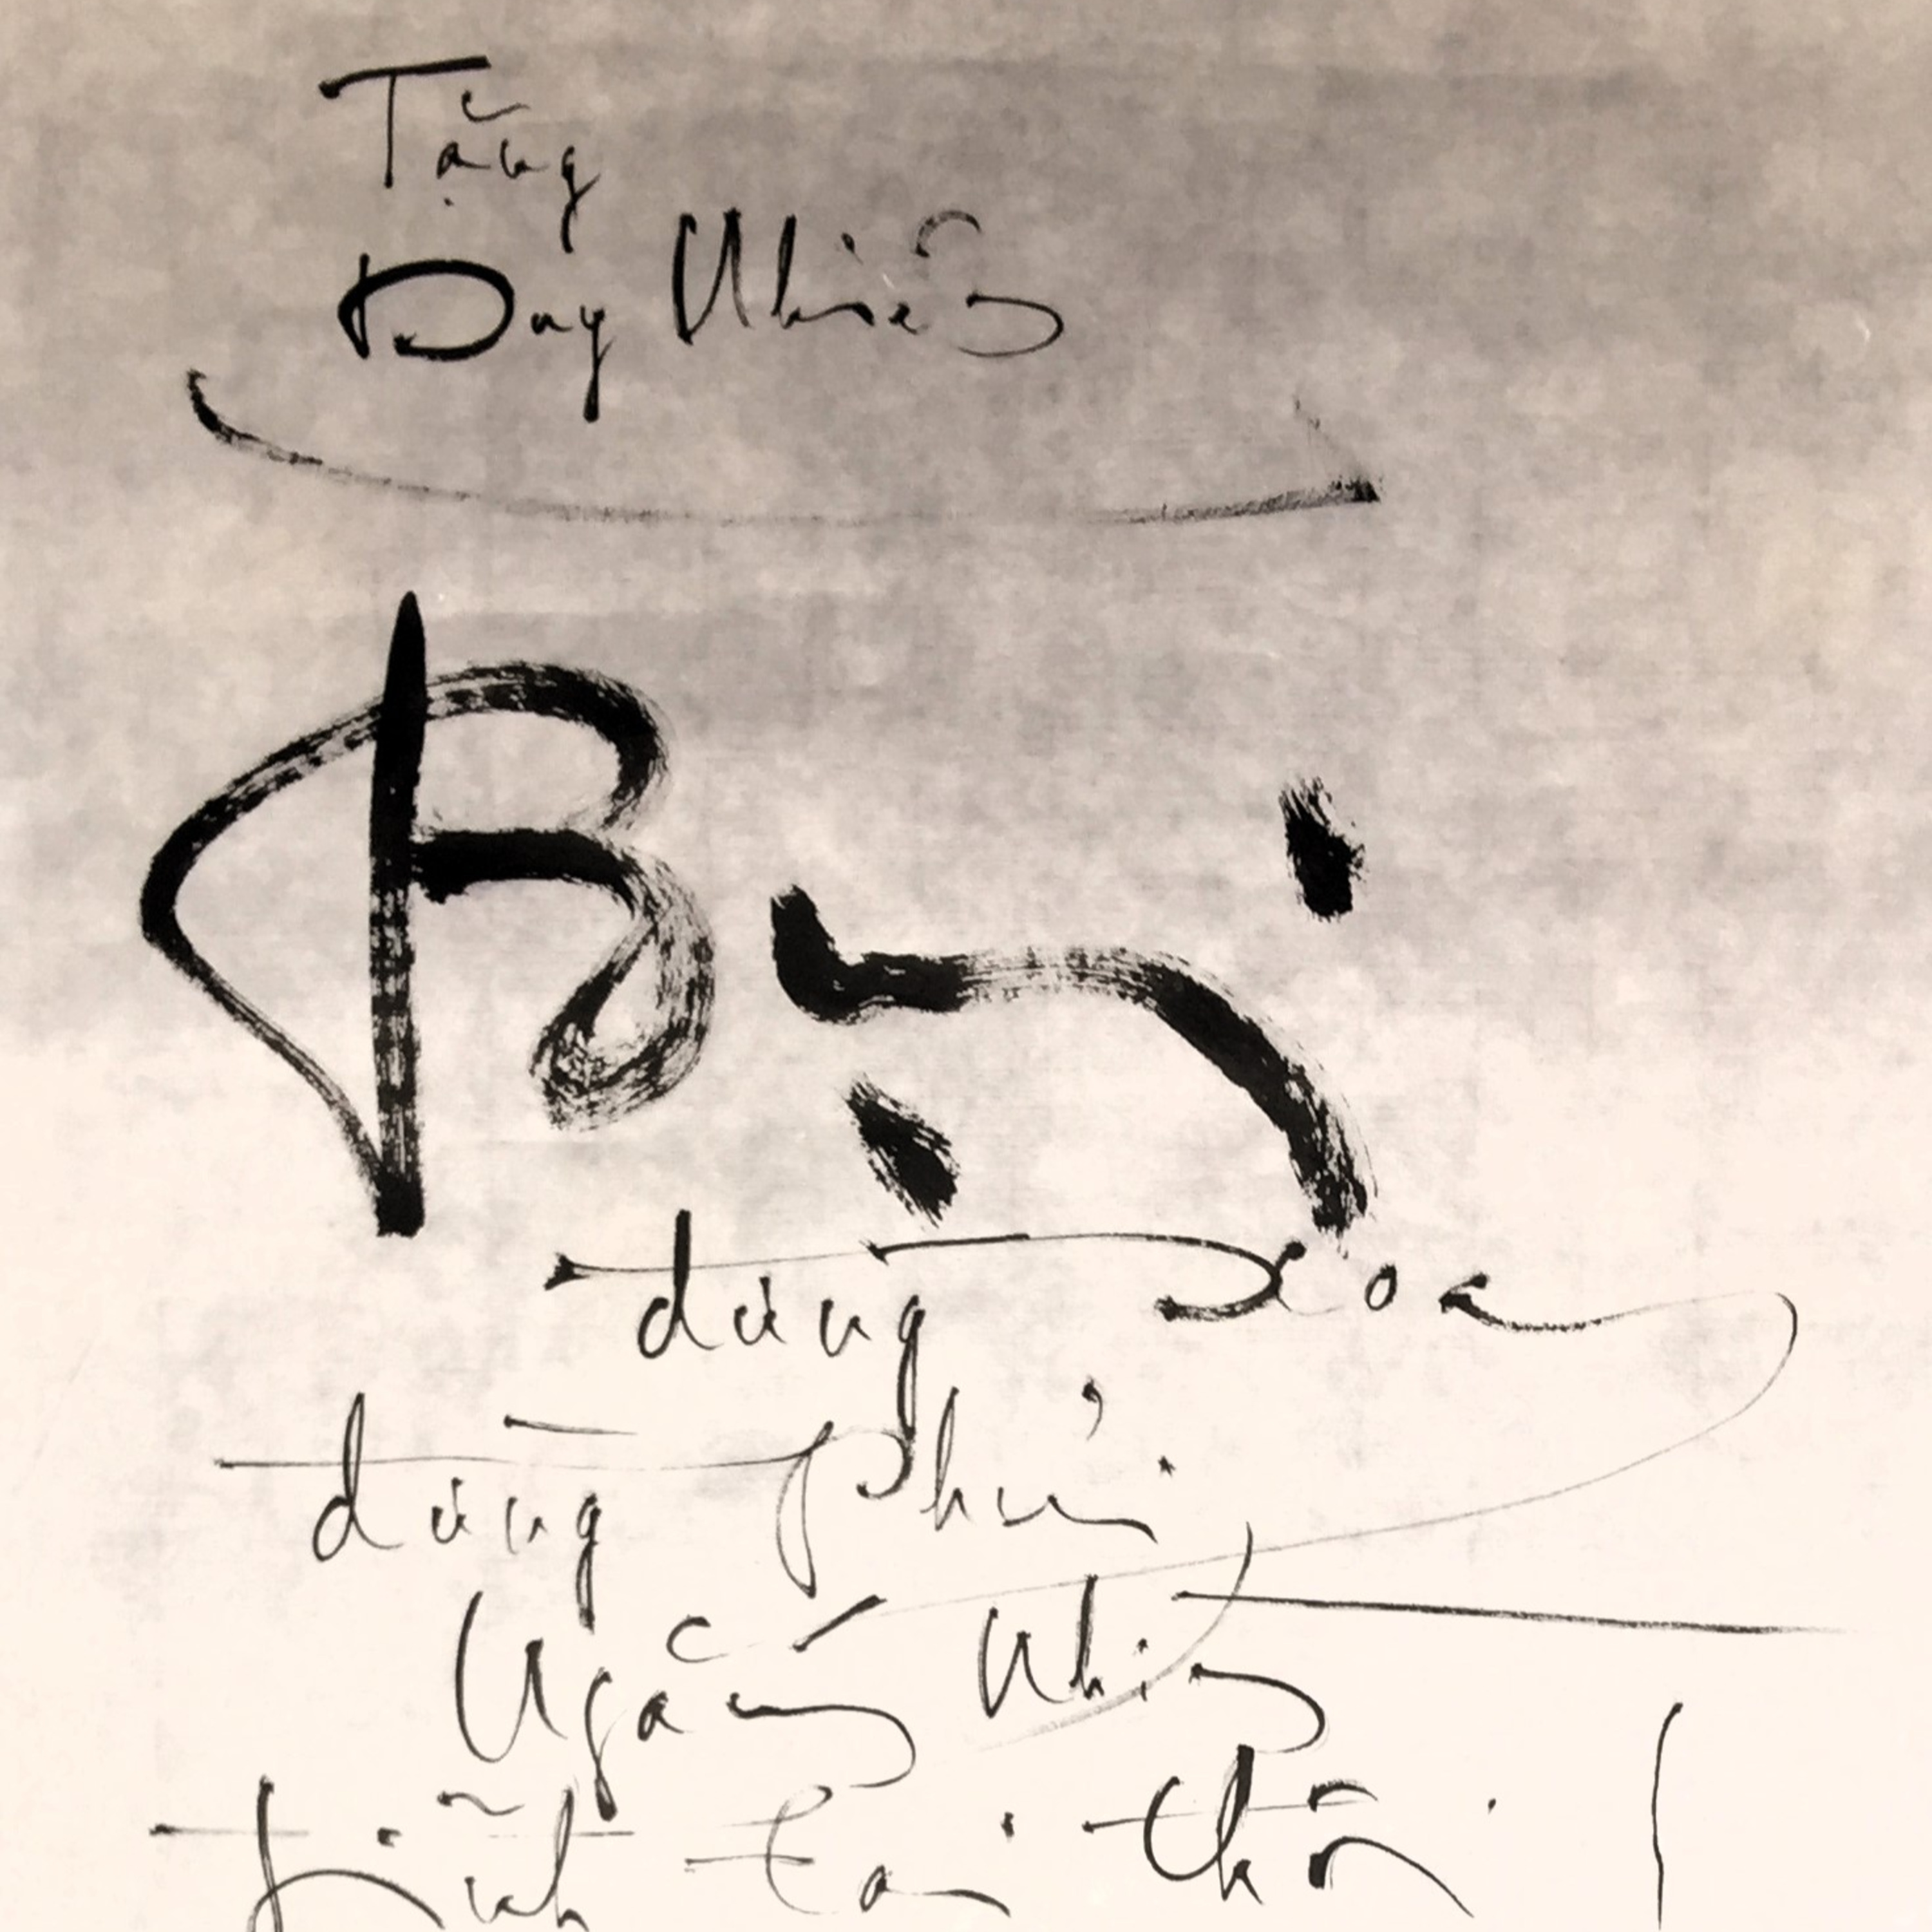 Tặng
Duy Nhiên
Bụi
đừng xoa
đừng phủi
Ngắm Nhìn
tĩnh tại thôi !